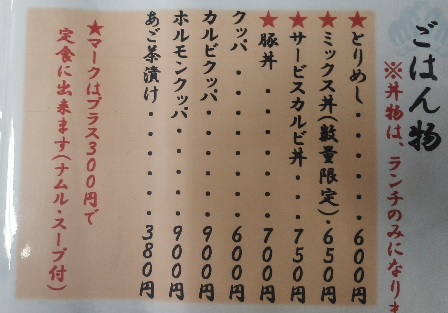 ごはん物
※丼物は、ランチのみになりま
★とりめし・・・・・・600円
★ミックス丼(数量限定)・650円
★サービスカルビ丼・・・750円
★豚丼・・・・・・・700円
クッパ・・・・・・・600円
カルビクッパ・・・・・900円
ホルモンクッパ・・・・900円
あご茶漬け・・・・・・380円
★マークはプラス300円で
定食に出来ます(ナムル・スープ付)